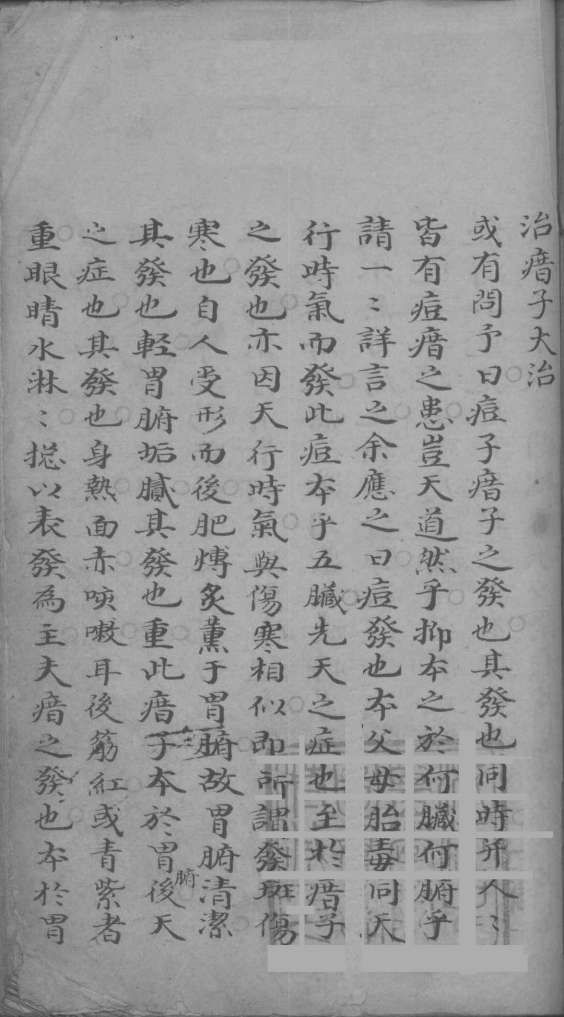 治㾪子大治
或有問予曰痘子㾪子之發也其發也同時并人〻
皆有痘㾪之患豈天道然乎抑本之於何臟何腑乎
請一〻詳言之余應之曰痘發也本父母胎毒同天
行時氣而發此痘本乎五臟先天之症也至於㾪子
之發也亦因天行時氣與傷寒相似即所謂發斑傷
寒也自人受形而後肥煿炙薰于胃腑故胃腑清潔
其發也輕胃腑垢膩其發也重此㾪子本於胃腑後天
之症也其發也身熱面赤咳嗽耳後筋紅或青紫者
重眼睛水淋〻揔以表發為主夫㾪之發也本於胃